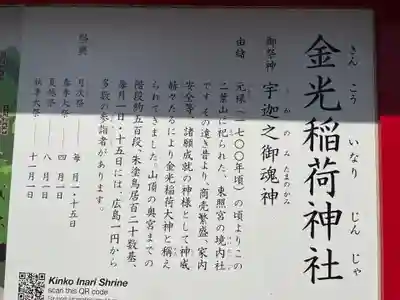 きん こう いなり じん じゃ
金光稲荷神社
御祭神 宇迦之御魂神
うかのみたまのかみ
由緒
元禄（一七〇〇年頃）の頃よりこの
二葉山に祀られた、東照宮の境内社
です。その遠き昔より、商売繁盛、家内
安全等、諸願成就の神様として神威
赫々たるにより金光稲荷大神と称え
られてきました。山頂の奥宮までの
階段約五百段、朱塗鳥居百二十数基、
毎月一日・十五日には、広島一円から
多数の参詣者があります。
祭典
月次祭 毎月一・十五日
春季大祭 四月一日
夏越祭 八月一日
秋季大祭 十一月一日
Kinko Inari Shrine
scan this QR code